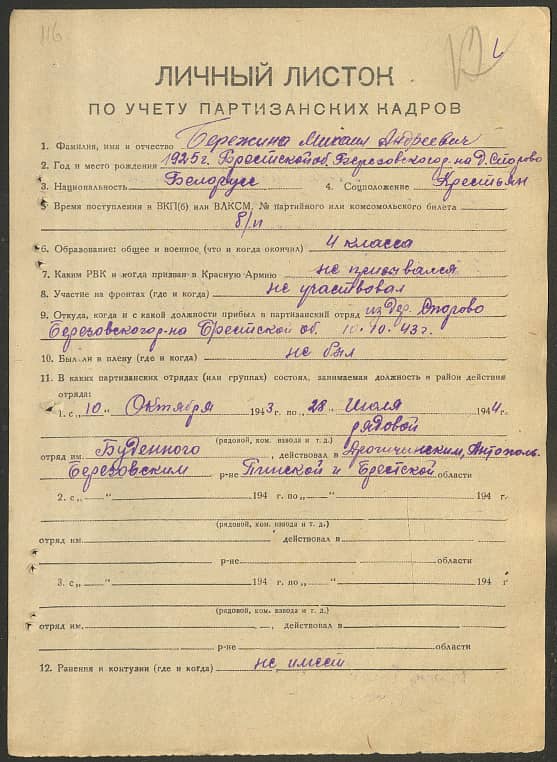 116
ЛИЧНЫЙ ЛИСТОК
ПО УЧЕТУ ПАРТИЗАНСКИХ КАДРОВ
1. Фамилия, имя и отчество Бережина Михаил Андреевич
2. Год и место рождения 1925 г. Брестской об. Березовского р-на д. Спорово
3. Национальность Белорусс 4. Соцположение Крестьян
5 Время поступления в ВКП(б) или ВЛКСМ, № партийного или комсомольского билета
б/п
6. Образование: общее и военное (что и когда окончил) 4 класса
7. Каким РВК и когда призван в Красную Армию не призывался
8. Участие на фронтах (где и когда) не участвовал
9. Откуда, когда и с какой должности прибыл в партизанский отряд из дер. Спорово
Березовского р-на Брестской об. 10.10.43 г.
10. Был ли в плену (где и когда) не был
11. В каких партизанских отрядах (или группах) состоял, занимаемая должность и район действия
отряда:
1. с „10“ Октября 1943 г. по „28“ Июля 1944 г.
рядовой
(рядовой, ком. взвода и т. д.)
отряд им. Буденного действовал в Дрогичинским, Антополь
Березовским р-не Пинской и Брестской области
2. с „ “ 194 г. по „ “ 194 г.
(рядовой, ком. взвода и т. д.)
отряд им. действовал в
р-не области
3. с „ “ 194 г. по „ “ 194 г
(рядовой, ком. взвода и т. д.)
отряд им. действовал в
р-не области
12. Ранения и контузии (где и когда) не имеет